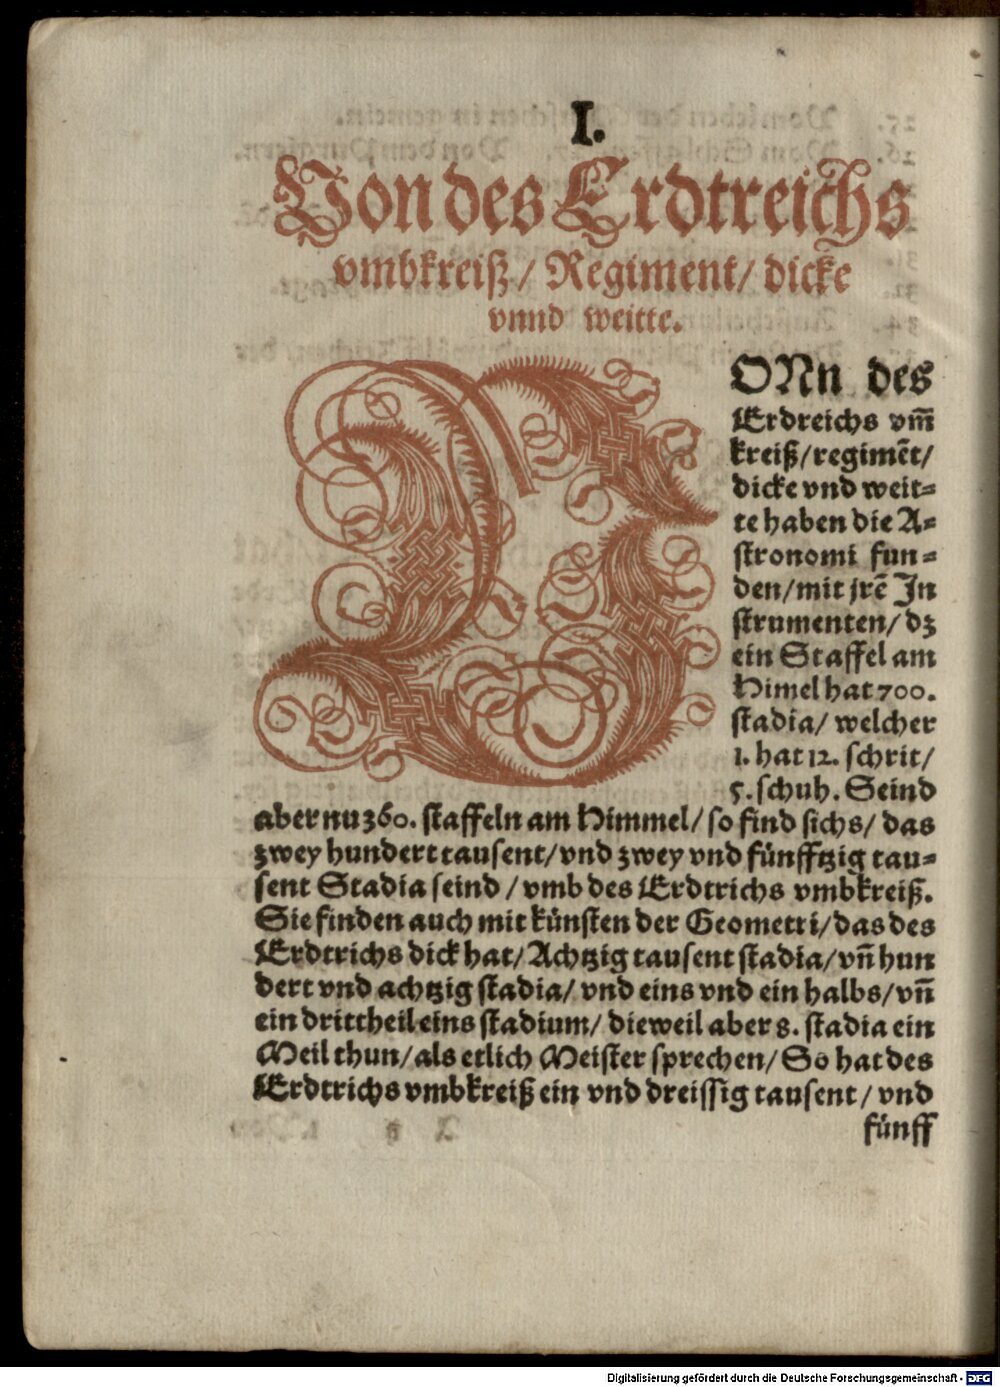 I.
Von des Erdtreichs
vmbkreiß/ Regiment/ dicke
vnnd weitte.
VONn des
Erdreichs vm̃
kreiß/regimẽt/
dicke vnd weit=
te haben die A=
stronomi fun=
den/mit jrẽ In
strumenten/ dz
ein Staffel am
Himel hat 700.
stadia/ welcher
1. hat 12. schrit/
5. schuh. Seind
aber nu 360. staffeln am Himmel/ so find sichs/ das
zwey hundert tausent/vnd zwey vnd fünfftzig tau=
sent Stadia seind / vmb des Erdtrichs vmbkreiß.
Sie finden auch mit künsten der Geometri/das des
Erdtrichs dick hat/ Achtzig tausent stadia/ vñ hun
dert vnd achtzig stadia/ vnd eins vnd ein halbs/ vñ
ein drittheil eins stadium/ dieweil aber 8. stadia ein
Meil thun/ als etlich Meister sprechen/ So hat des
Erdtrichs vmbkreiß ein vnd dreissig tausent/ vnd
fünff
Digitalisierung gefördert durch die Deutsche Forschungsgemeinschaft - DFG